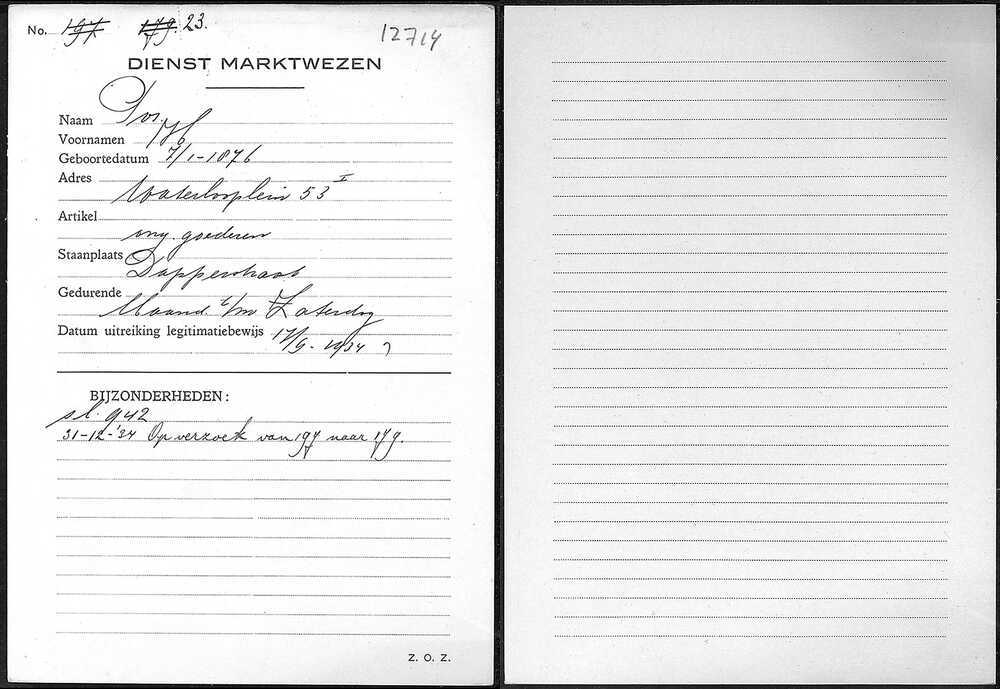 No. 197 179. 23. 12714
DIENST MARKTWEZEN
Naam Vos.
Voornamen
Geboortedatum 7/1-1876
Adres
Waterlooplein 53 I
Artikel
ong. goederen
Staanplaats
Dapperstraat
Gedurende
Maand. t/m Zaterdag
Datum uitreiking legitimatiebewijs 17/9-1934
BIJZONDERHEDEN:
sl. 942
31-12-'34 Op verzoek van 197 naar 179.
Z. O. Z.